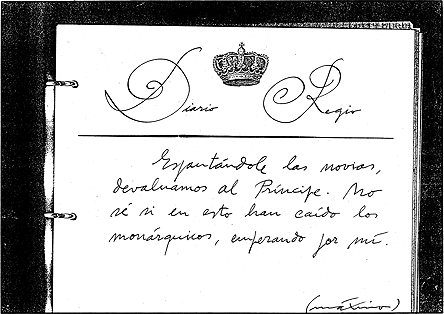 Diario Regio
Espantándole las novias,
devaluamos al Príncipe. No
sé si en esto han caído los
monárquicos, empezando por mí.
(máximo)